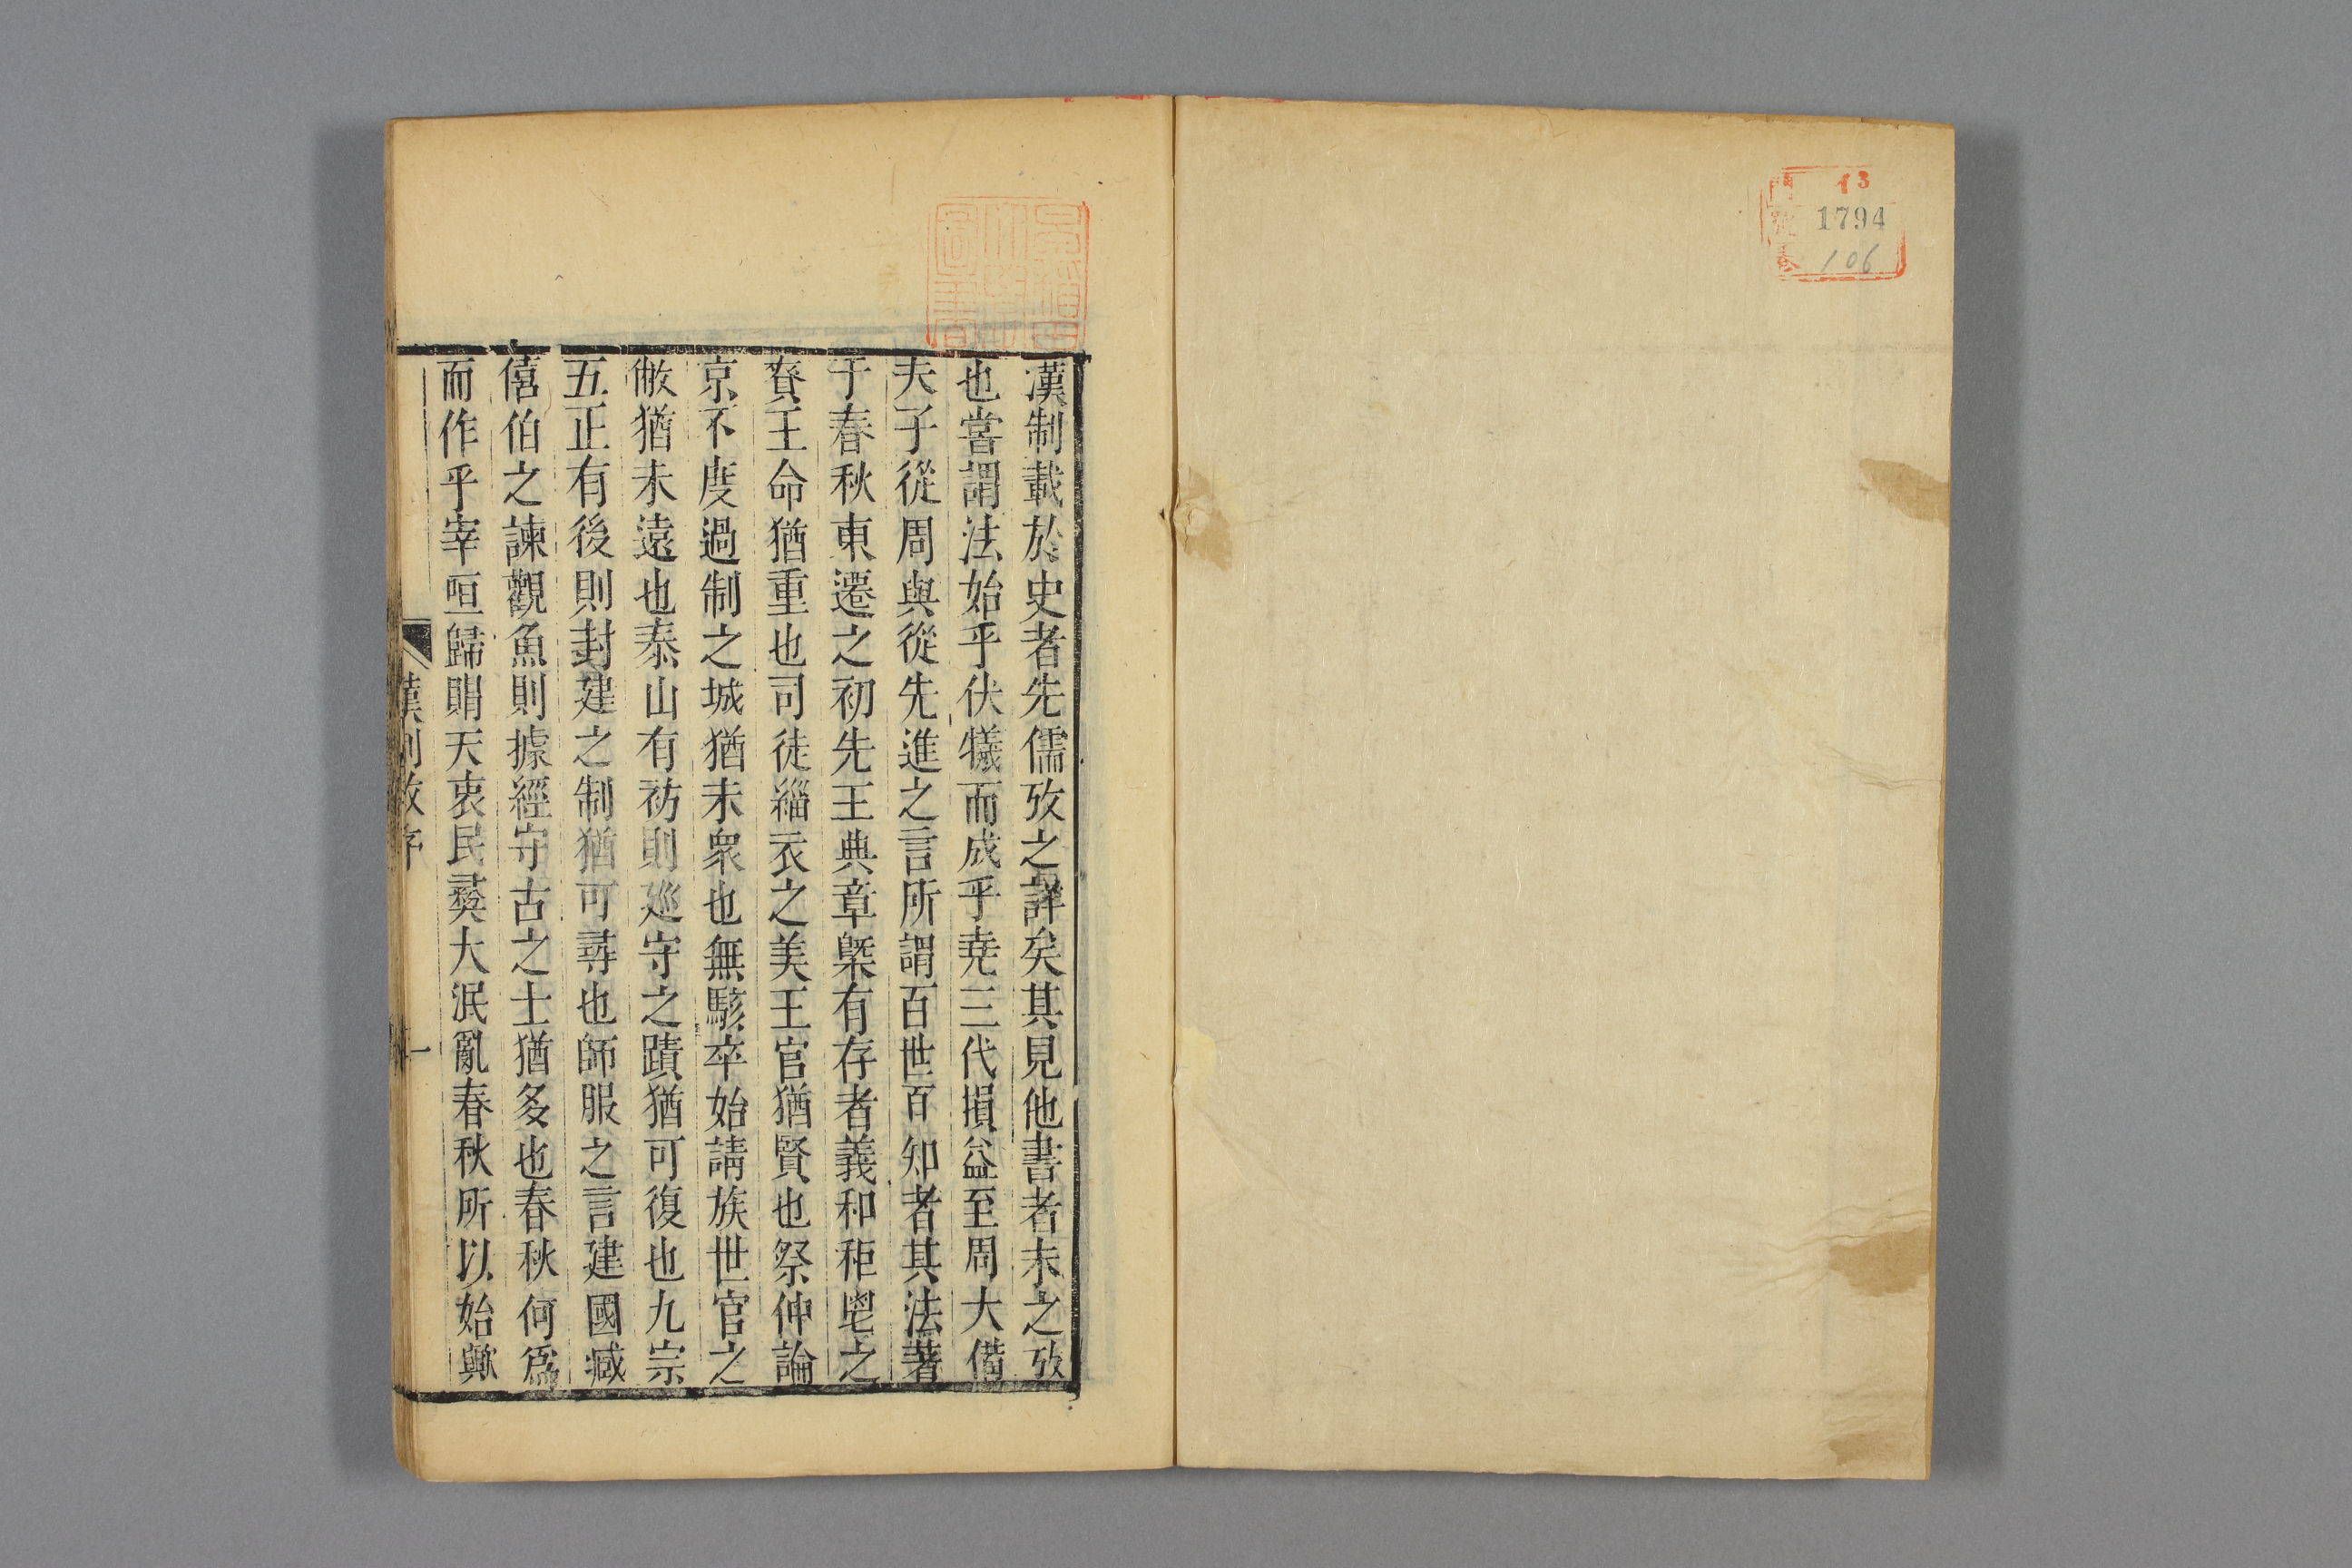 13
1794
106
漢制載於史者先儒攷之詳矣其見他書者未之攷
也嘗謂法始乎伏犧而成乎堯三代損益至周大備
夫子從周與從先進之言所謂百世百知者其法著
于春秋東遷之初先王典章槩有存者義和秬鬯之
賚王命猶重也司徒緇衣之美王官猶賢也祭仲論
京不度過制之城猶未衆也無駭卒始請族世官之
敝猶未遠也泰山有祊則廵守之蹟猶可復也九宗
五正有後則封建之制猶可尋也師服之言建國臧
僖伯之諫觀魚則據經守古之士猶多也春秋何爲
而作乎宰咺歸賵天衷民彛大泯亂春秋所以始歟
漢制攷序
一